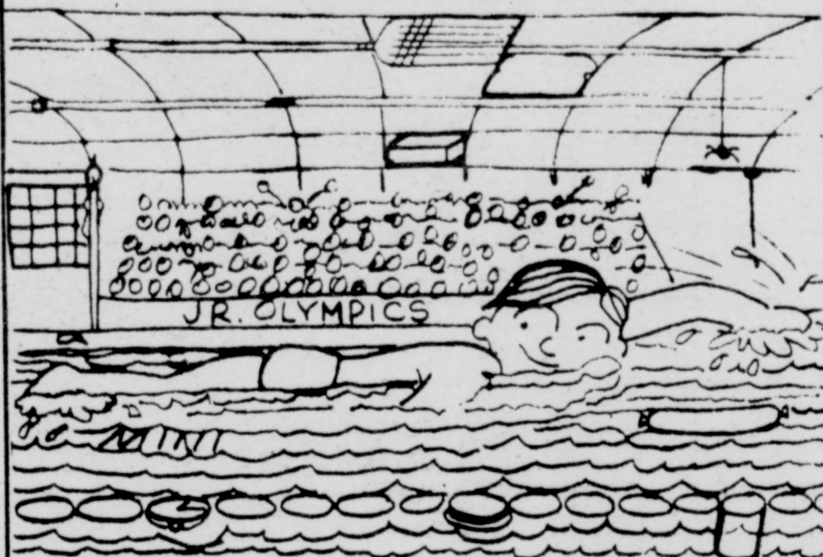 JR. OLYMPICS